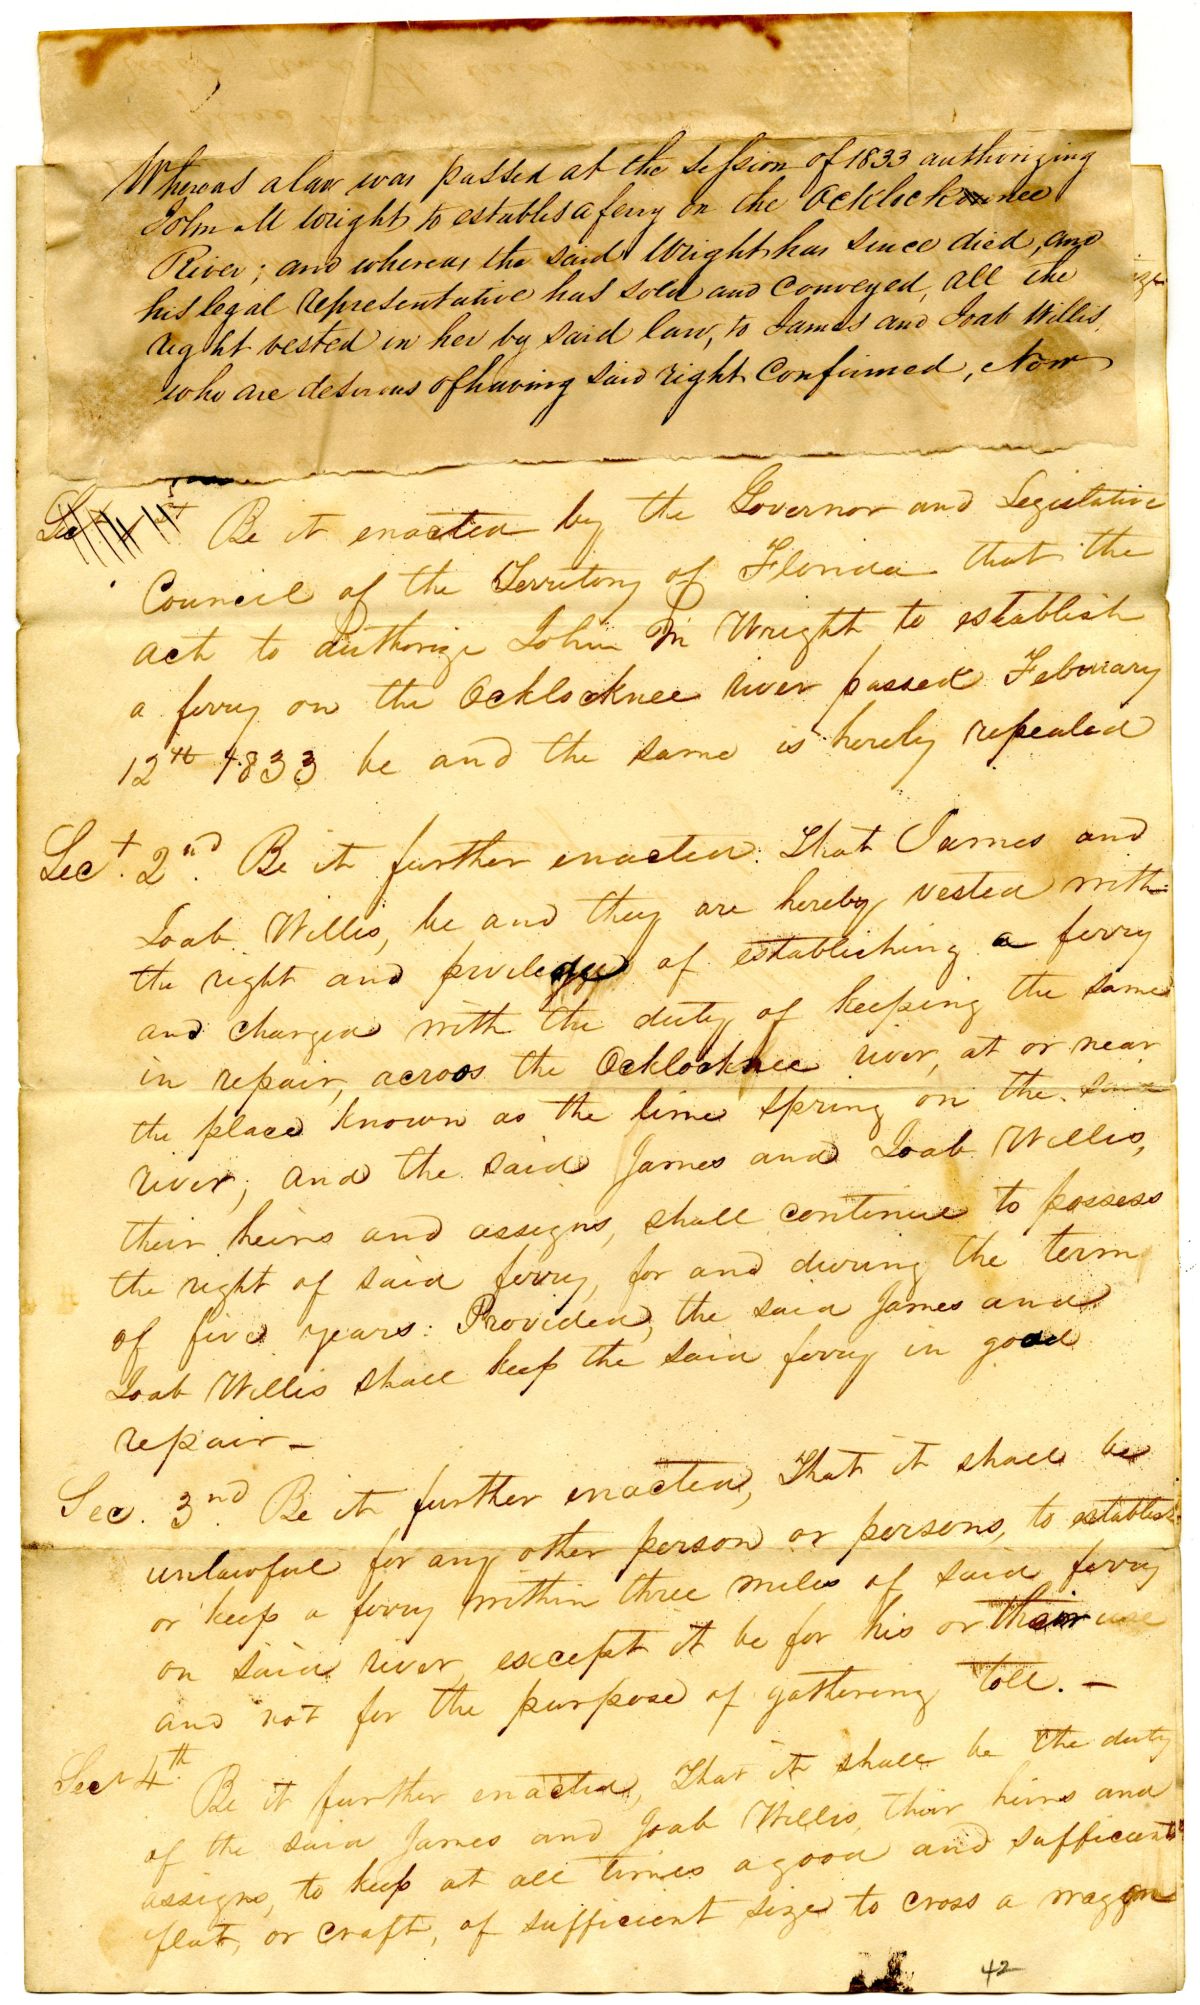 Whereas a law was passed at the session of 1833 authorizing
John M Wright to establish a ferry on the Ocklocknee
River; and whereas the said Wright has since died, and
his legal representative has sold and conveyed, all the
right vested in her by said law, to James and Joab Willis,
who are desirous of having said right confirmed, Now
Sec 1st Be it enacted by the Governor and Legislative
Council of the Territory of Florida that the
act to authorize John M Wright to establish
a ferry on the Ocklocknee river passed February
12th 1833 be and the same is hereby repealed
Sect. 2nd. Be it further enacted: That James and
Joab Willis, be and they are hereby vested with
the right and privilege of establishing a ferry
and charged with the duty of keeping the same
in repair, across the Ocklocknee river, at or near
the place known as the lime spring on the said
river; and the said James and Joab Willis,
their heirs and assigns, shall continue to possess
the right of said ferry, for and during the term
of five years: Provided, the said James and
Joab Willis shall keep the said ferry in good
repair—
Sec. 3nd. Be it further enacted, That it shall be
unlawful for any other person or persons, to establish
or keep a ferry within three miles of said ferry
on said river, except it be for his or their use
and not for the purpose of gathering toll. —
Sect 4th. Be it further enacted, That it shall be the duty
of the said James and Joab Willis, their heirs and
assigns, to keep at all times a good and sufficient
flat, or craft, of sufficient size to cross a waggon
42